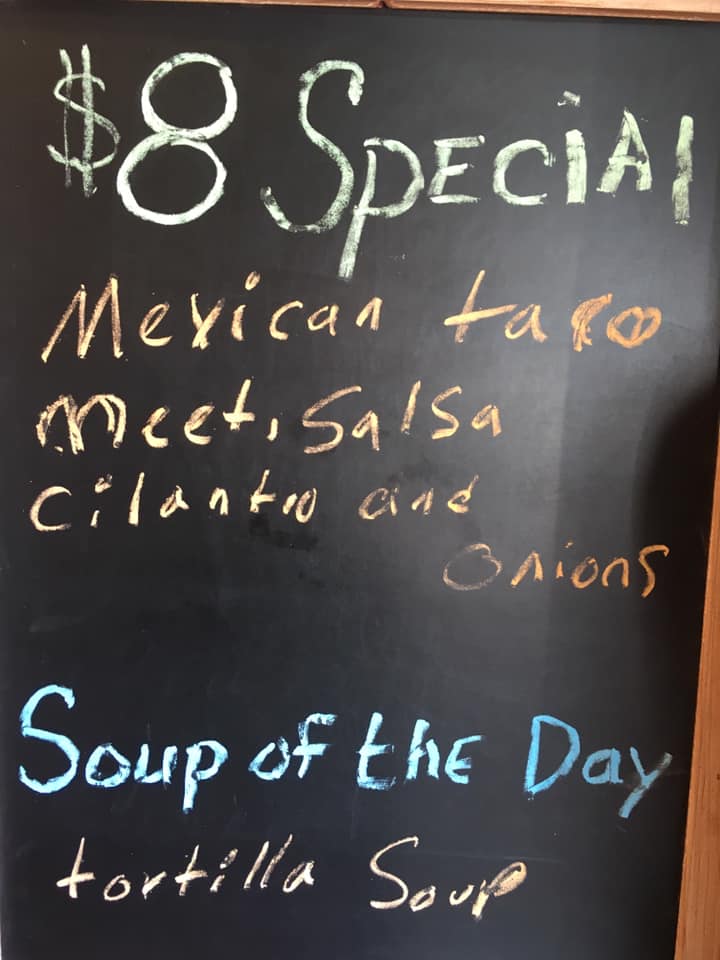 $8 Special
Mexican taco
meet, Salsa
cilantro and
onions
Soup of the Day
tortilla Soup